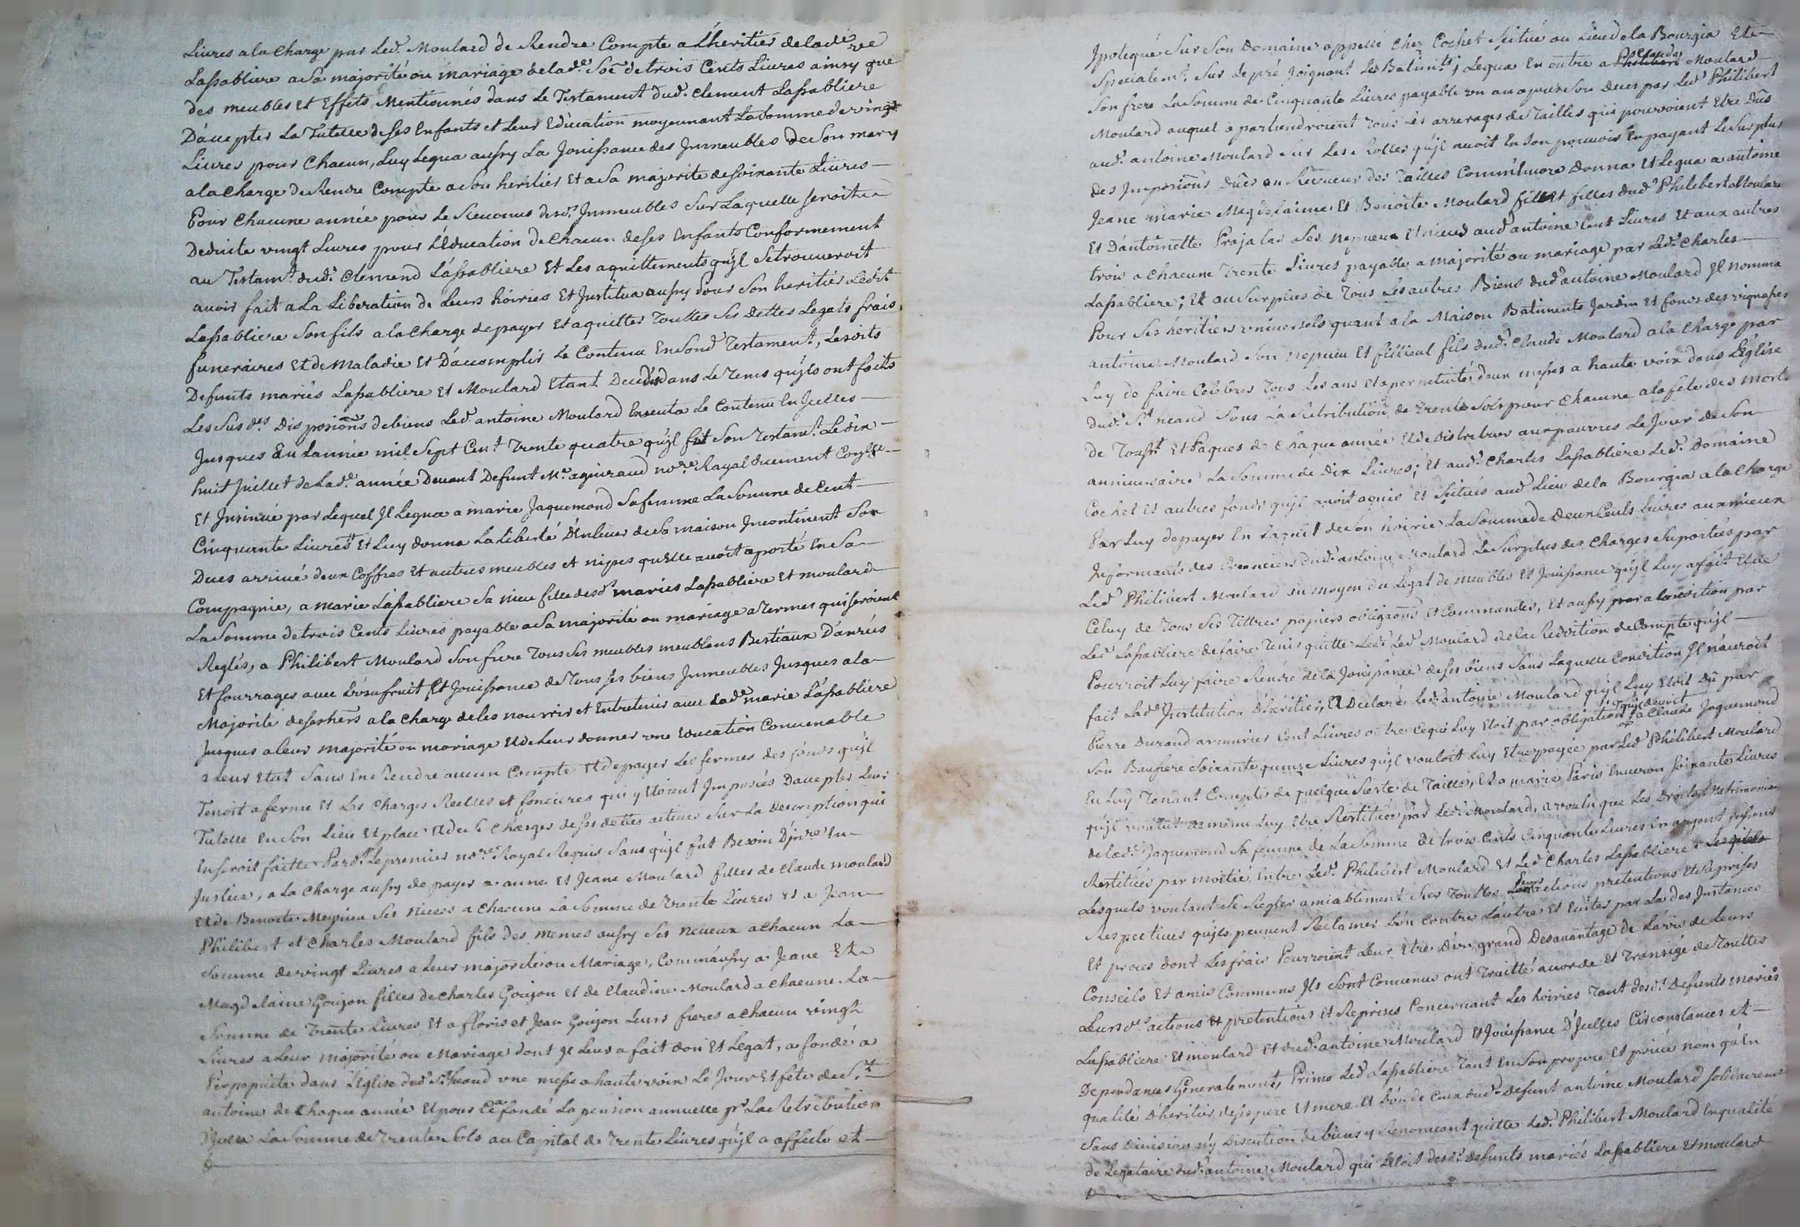 Livres a la Charge par Led. Moulard de Rendre Compte a L'heritier de lade
Lassabliere a Sa majorité ou mariage de lade. Soe. de trois Cents Livres ainsy que
des meubles et Effets Mentionnés dans Le Testament dud. Clement Lassabliere
D'accepter La Tutelle de Ses Enfants et Leur Education moyennant La Somme de vingt
Livres pour Chacun, Luy Legua aussy La Jouissance des Immeubles de Son mary
a la Charge de Rendre Compte a Son heritier Et a Sa majorité de Soixante Livres
Pour Chacune année pour Le Revenus desd. Immeubles Sur Laquelle Seroit
Deduite vingt Livres pour L'Education de Chacun de Ses Enfants Conformement
au Testamt. dud. Clemend Lassabliere Et Les aquittements qu'jl Se trouveroit
avoir fait a La Liberation de Leurs hoiries Et Justitua aussy Pour Son heritier Ledit
Lassabliere Son fils a la Charge de payer Et aquitter Touttes Ses Dettes Legats frais
funeraires Et de Maladie Et D'accomplir Le Contenu En Sond. Testament, Lesdits
Defunts mariés Lassabliere Et Moulard Etant Decedés dans Le Tems qu'jls ont faits
Les Susdes. Disposions. de biens Led. antoine Moulard Executa Le Contenu En Jcelles
Jusques En L'année mil Sept Cent Trente quatre qu'jl fit Son Testamt. Le dix
huit Juillet de Lade. année Devant Defunt Me. agniraud nore. Royal Duement Conllé
Et Jnsinué par Lequel Jl Legua a marie Jaquemond Sa femme La Somme de Cent
Cinquante Livres Et Luy donna La Liberté D'Enlever de Sa maison Jncontinent Son
Deces arrivé deux Coffres Et autres meubles et nipes qu'Elle avoit aporté En Sa
Compagnie, a Marie Lassabliere Sa niece fille desd. mariés Lassabliere Et Moulard
La Somme de trois Cents Livres payable a Sa majorité ou mariage a Termes qui Seroient
Reglés, a Philibert Moulard Son frere Tous Ses meubles meublans Bestiaux Danrées
Et fourrages avec L'Usufruit Et Jouissance de Tous Ses biens Jmmeubles Jusques a la
Majorité de Ses hers a la Charge de les nourrir et Entretenir avec Lade. marie Lassabliere
Jusques a leur majorité ou mariage Et de Leur donner une Education Convenable
a Leur Etat Sans En Rendre aucun Compte Et de payer Les fermes des fonds qu'jl
Tenoit a ferme Et Les Charges Reelles et foncieres qui y Etoient Jmposées D'accepter Leur
Tutelle En Son Lieu Et place Et de Se Charger de Ses dettes actives Sur La description qui
En Seroit faitte Par Le premier nore. Royal Requis Sans qu'jl fut Besoin D'jnvre. En
Justice, a La Charge aussy de payer a anne Et Jeane Moulard filles de Claude moulard
Et de Benoite Meynieu Ses nieces a Chacune La Somme de Trente Livres Et a Jean
Philibert et Charles Moulard fils des memes aussy Ses neveux a Chacun La
Somme de vingt Livres a Leur majorité ou Mariage, Comm'aussy a Jeane Et
Magdelaine Goujon filles de Charles Goujon et de Claudine Moulard a Chacune La
Somme de Trente Livres Et a floris et Jean Goujon Leurs freres a Chacun vingt
Livres a Leur majorité ou Mariage dont Jl Leur a fait Don Et Legat, a fondé a
Perpetuité dans L'Eglise dud. St. heand une messe a haute voix Le Jour Et fête de St.
antoine de Chaque année Et pour Ca fondé La pension annuelle pr. La Retribution
D'jcelle La Somme de Trente Sols au Capital de Trente Livres qu'jl a affecté et
Jpotequé Sur Son Domaine appellé Chez Cochet Scitué au Lieu de la Bourgia Et
Specialemt. Sur Le pré Joignant Les Batimts.; Legua En outre a Claude Moulard
Son frere La Somme de Cinquante Livres payable un an apres Son Deces par Led. Philibert
Moulard auquel apartiendroient Tous Les arrerages de Tailles qui pourroient Etre dûs
aud. antoine Moulard Sur Les Rolles qu'jl avoit En Son pouvoir En payant Le Surplus
Des Jmposions. Dûes au Receveur des Tailles Comm'Encore Donna Et Legua a antoine
Jeane marie Magdelaine Et Benoite Moulard fils et filles dud. Philibert Moulard
Et D'antoinette Prajalas Ses Neveux Et nieces aud. antoine Cent Livres Et aux autres
trois a Chacune Trente Livres payable a majorité ou mariage par Led. Charles
Lassabliere; Et au Surplus de Tous Les autres Biens dud. antoine Moulard Jl nomma
Pour Ses heritiers universels quant a la Maison Batiments Jardin Et fonds des vignasses
antoine Moulard Son Neveu Et fillieul fils dud. Claude Moulard a la Charge par
Luy de faire Celebrer Tous Les ans Et a perpetuité d'une messe a haute voix dans L'Eglise
dud. St. heand Sous La Retribution de Trente Sols pour Chacune a la fête des Morts
de Toust. Et Paques de Chaque année Et de Distribuer aux pauvres Le Jour de Son
anniversaire La Somme de Dix Livres; Et aud. Charles Lassabliere Led. Domaine
Cochet Et autres fonds qu'jl avoit aquis Et Scitués aud. Lieu de la Bourgia a la Charge
Par Luy de payer En L'aquit de Son hoirie La Somme de Deux Cents Livres au
des Creanciers dud. antoine Moulard Le Surplus des Charges Suportées par
Led. Philibert Moulard au moyen du Legat de meubles Et Jouissance qu'jl Luy a fait Et de
Celuy de Tous Ses Tittres papiers obligaons. Et Commandes, Et aussy a Condition par
Led. Lassabliere de faire Tenir quitte Led. Moulard de la Reddition de Compte qu'jl
Pourroit Luy faire Rendre de la Jouissance de Ses biens Sans Laquelle Condition Jl n'auroit
fait Lade. Jnstitution D'heritier, a Declaré Led. antoine Moulard qu'jl Luy Etoit Dû par
Pierre Durand armurier Cent Livres outre Ce qui Luy Etoit par obligation a Claude Jaquemond
Son Beaufrere Soixante quinze Livres qu'jl vouloit Luy Etre payée par Led. Philibert Moulard
En Luy Tenant Compte de quelque Reste de Tailles, Et a marie Paris Environ Soixante Livres
qu'jl vouloit de même Luy Etre Restitués par Led. Moulard, a voulu que Les Droits Patrimoniaux
de Lade. Jaquemond Sa femme de La Somme de trois Cents Cinquante Livres En argent fussent
Restitués par moitié Entre Led. Philibert Moulard Et Led. Charles Lassabliere
Lesquels voulant Se Regler amiablement Sur Touttes Leurs actions pretentions Et Reprises
Respectives qu'jls peuvent Reclamer L'un Contre L'autre Et Eviter par La des Jnstances
Et procés dont Les frais Pourroient Leur Etre D'un grand Desavantage De L'avis de Leurs
Conseils Et amis Communs Jls Sont Convenus ont Traitté acordé Et Transigé de Touttes
Leursdes. actions Et pretentions Et Reprises Concernant Les hoiries Tant desd. Defunts mariés
Lassabliere Et moulard Et dud. antoine Moulard Et Jouissance D'Jcelles Circonstances et
Dependances Generalement, Primo Led. Lassabliere Tant En Son propre Et privé nom qu'En
qualité D'heritier de Ses pere Et mere Et D'un de Ceux dud. Defunt antoine Moulard Solidairement
Sans Division ny Discution de biens y Renonceant quitte Led. Philibert Moulard En qualité
de Legataire dud. antoine Moulard qui L'Etoit desd. defunts mariés Lassabliere Et moulard